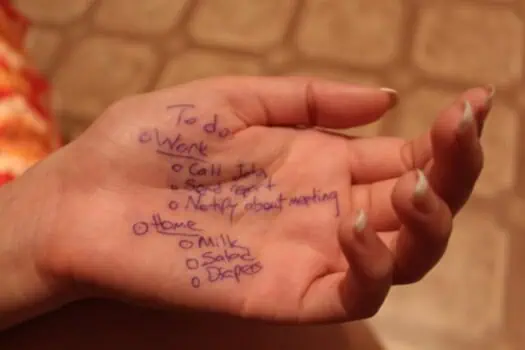 To do
Work
Call John
Send report
Notify about meeting
Home
Milk
Salad
Diapers